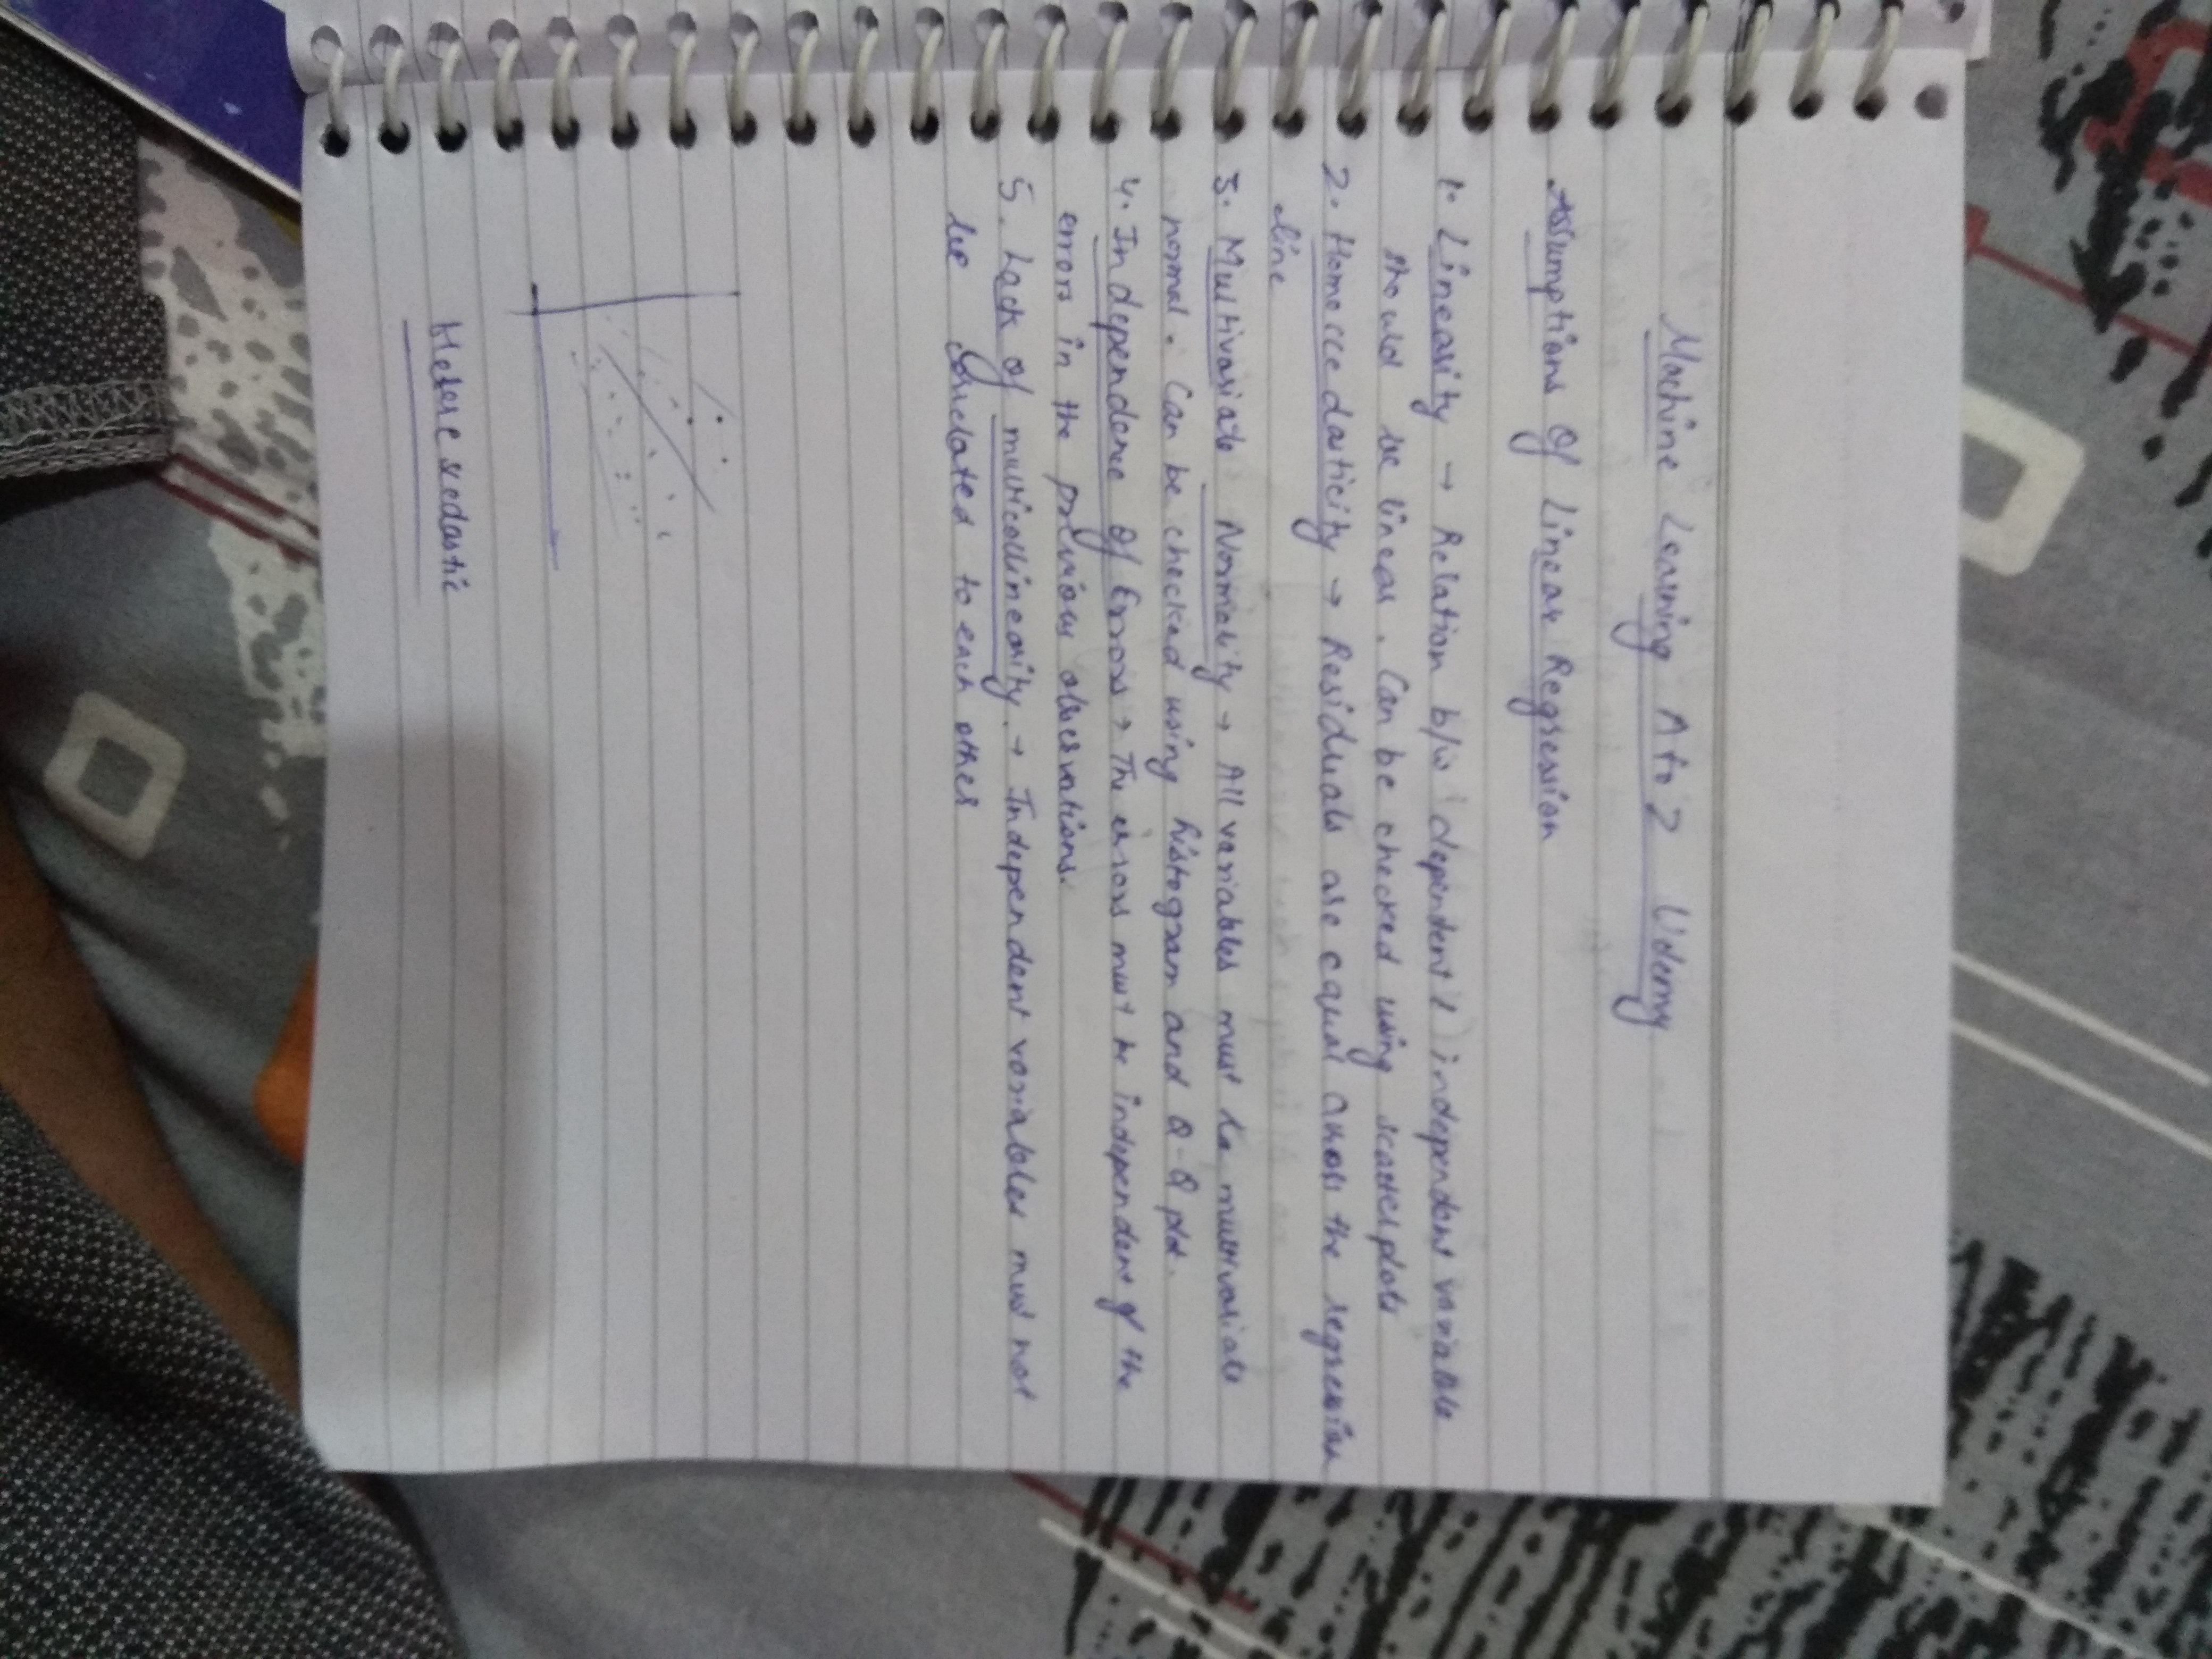 Machine Learning A to Z Udemy
Assumptions Of Linear Regression
1. Linearity → Relation b/w dependent & independent variable
should be linear. Can be checked using scatterplots
2. Homoccedasticity → Residuals are equal across the regression
line
3. Multivariate Normality → All variables must be multivariate
normal. Can be checked using histogram and Q-Q plot.
4. Independence Of Errors → The errors must be independent of the
errors in the previous observations.
5. Lack Of multicollinearity. → Independent variables must not
be correlated to each other